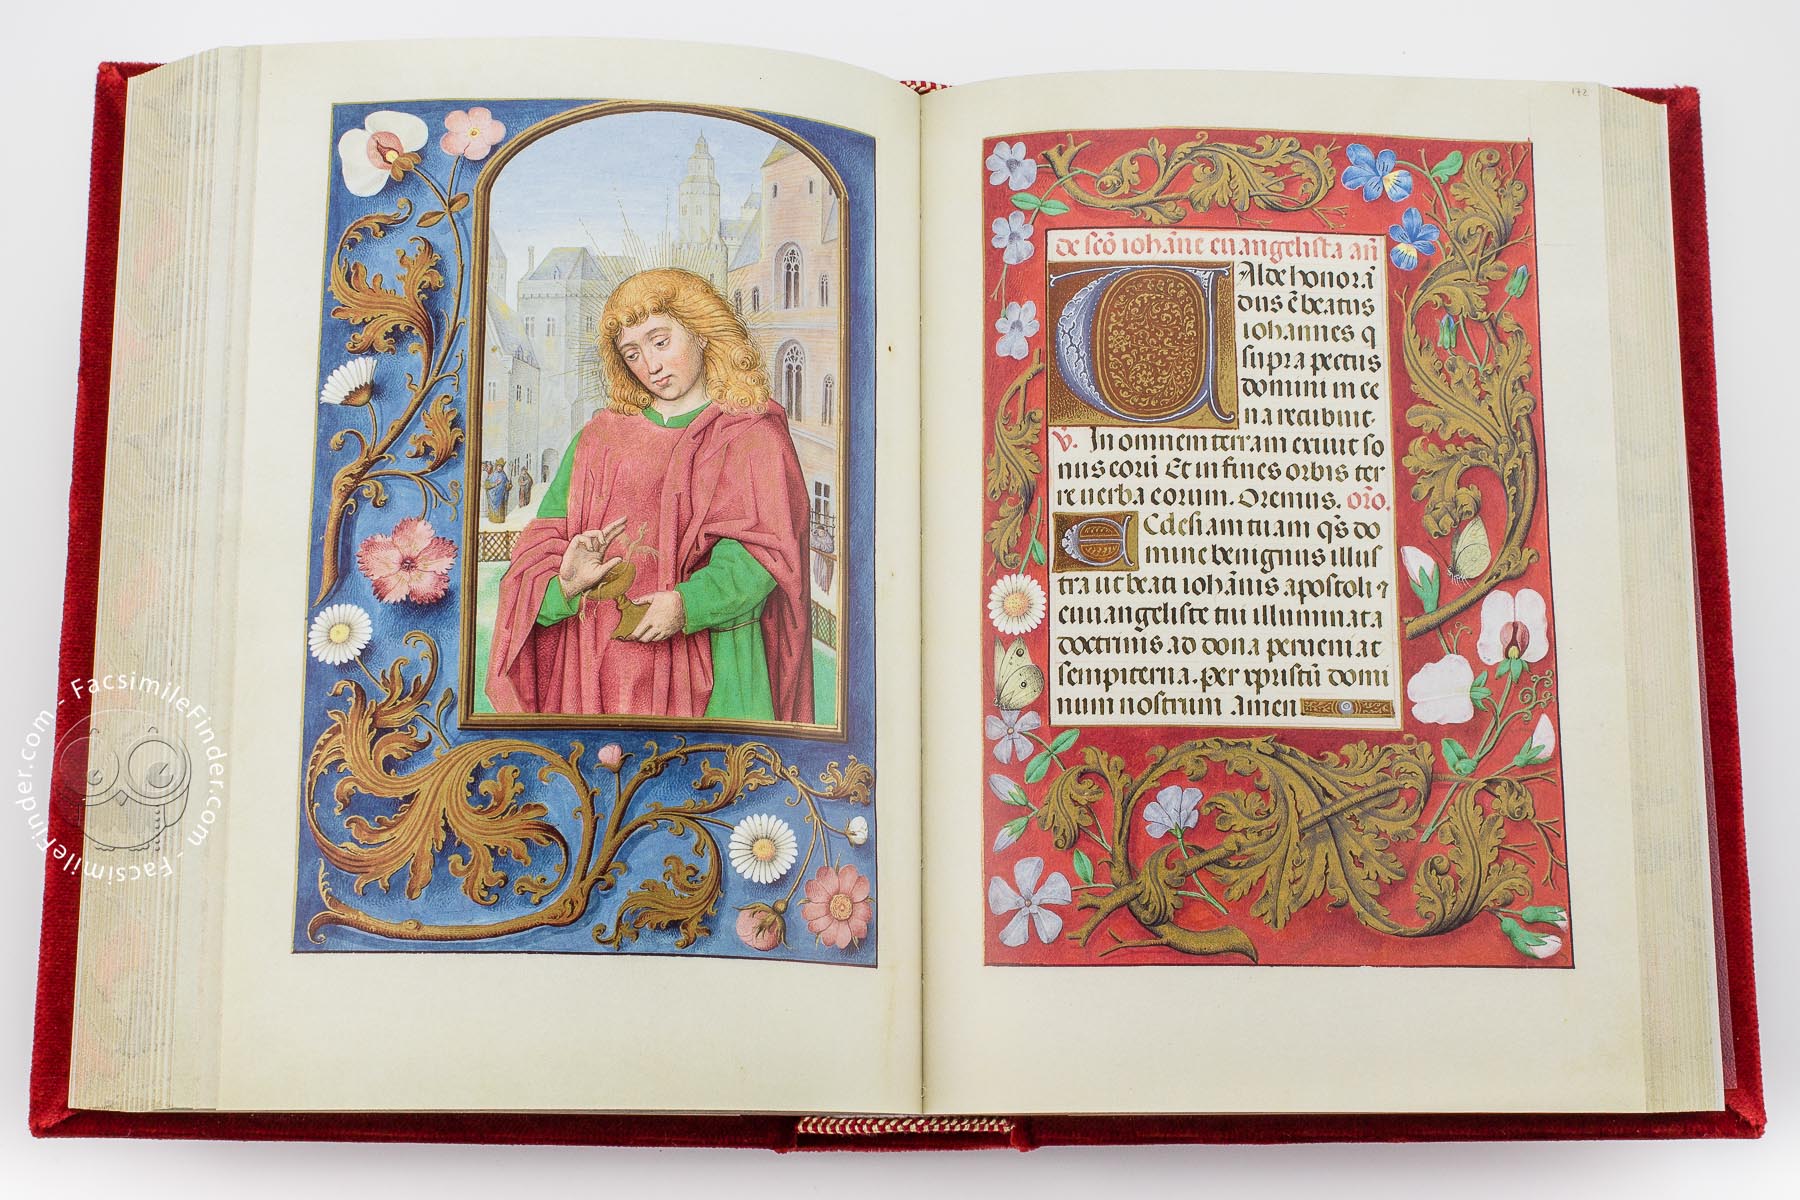 172
de scō ioħāne euangelista añ
Ualde honorā
dus ē beatus
iohannes q
supra pectus
domini in ce
na recubuit.
V̄. In omnem terram exiuit so
nus eorū Et in fines orbis ter
re uerba eorum. Oremus. orō.
Ecclesiam tuam qs do
mine benignus illus
tra ut beati iohānis apostoli ⁊
euuangeliste tui illuminata
doctrinis ad dona perueniat
sempiterna. per xpristū domi
num nostrum Amen
FacsimileFinder.com - FacsimileFinder.com - FacsimileFinder.com